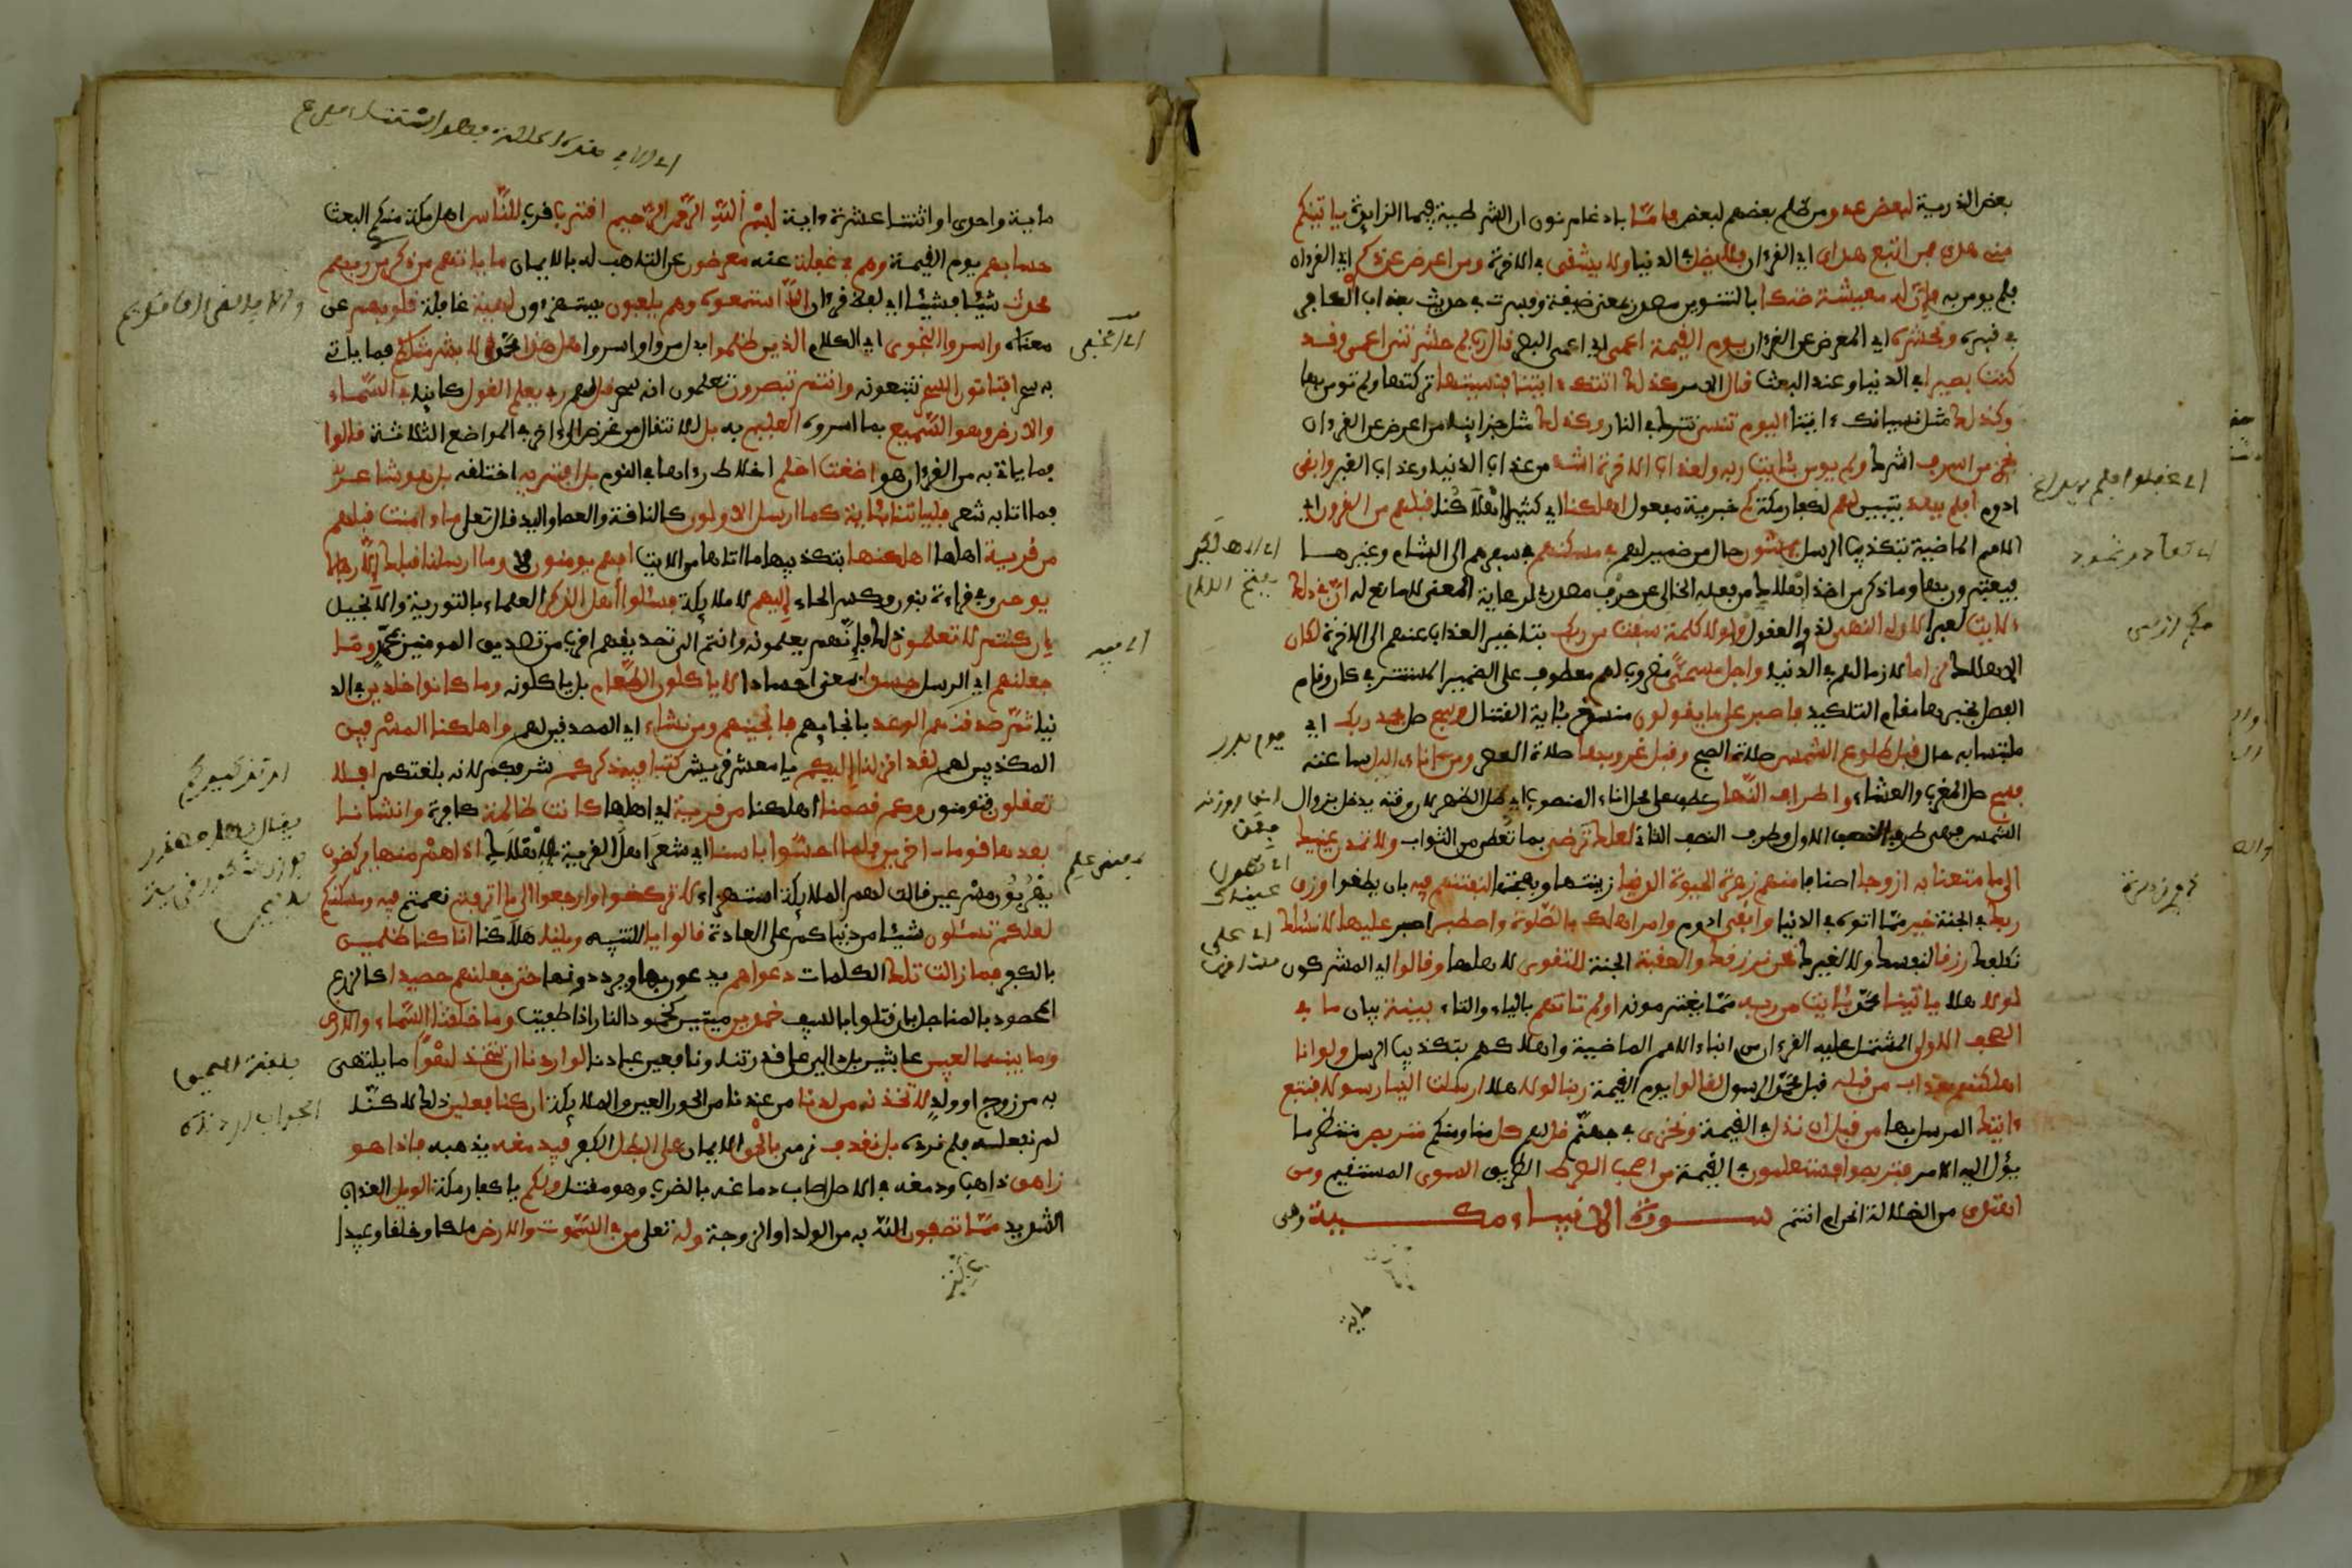 بعض الذرية لبعض عدو من ظلم بعضهم لبعض فاما بادغام نون ان الشرطية فيما الزايدة ياتينكم
مني هدى فمن اتبع هداي اي القرءان فلا يضل في الدنيا ولا يشقى في الاخرة ومن اعرض عن ذكري اي القرءان
فلم يومن به فان له معيشة ضنكا بالتنوين مصدر بمعنى ضيقة وفسرت في حديث بعذاب الكافر
في قبره ونحشره اي المعرض عن القرءان يوم القيمة اعمى اي اعمى البصر قال رب لم حشرتني اعمى وقد
كنت بصيرا في الدنيا وعند البعث قال الامر كذلك اتتك ءايتنا فنسيتها تركتها ولم تومن بها
وكذلك مثل نسيانك ءايتنا اليوم تنسى تترك في النار وكذلك مثل جزاينا من اعرض عن القرءان
نجزي من اسرف اشرك ولم يومن بئايت ربه ولعذاب الاخرة اشد من عذاب الدنيا وعذاب القبر وابقى
ادوم افلم يهد يتبين لهم لكفار مكة كم خبرية مفعول اهلكنا اي كثيرا اهلاكنا قبلهم من القرون اي
الامم الماضية بتكذيب الرسل يمشون حال من ضمير لهم في مسكنهم في سفرهم الى الشام وغيرها
فيعتبرون بها وما ذكر من اخذ اهلاك من فعله الخالي عن حرف مصدري لرعاية المعنى لا مانع له ان في ذلك
ءلايت لعبرا لاولي النهى لذوي العقول ولولا كلمة سبقت من ربك بتاخير العذاب عنهم الى الاخرة لكان
الاهلاك لزاما لازما لهم في الدنيا واجل مسمى مضروب لهم معطوف على الضمير المستتر في كان وقام
الفصل بخبرها مقام التاكيد فاصبر على ما يقولون منسوخ بئاية القتال وسبح صل بحمد ربك اي
ملتبسا به حال قبل طلوع الشمس صلاة الصبح وقبل غروبها صلاة العصر ومن اناءي اليل ساعته
فسبح صل المغرب والعشاء واطراف النهار عطف على محل اناء المنصوب اي صل الظهر لان وقته يدخل بزوال
الشمس فهي طرف النصف الاول وطرف النصف الثاني لعلك ترضى بما تعطى من الثواب ولا تمدن عينيك
الى ما متعنا به ازوجا اصنافا منهم زهرة الحيوة الدنيا زينتها وبهجتها لنفتنهم فيه بان يطغوا ورزق
ربك في الجنة خير مما اتوه في الدنيا وابقى ادوم وامر اهلك بالصلوة واصطبر اصبر عليها لا نسئلك
نكلفك رزقا لنفسك ولا لغيرك نحن نرزقك والعقبة الجنة للتقوى لاهلها وقالوا اي المشركون
لولا هلا ياتينا محمد بئاية من ربه مما يقترحونه اولم تاتهم بالياء والتاء بينة بيان ما في
الصحف الاولى المشتمل عليه القرءان من انباء الامم الماضية واهلاكهم بتكذيب الرسل ولو انا
اهلكنهم بعذاب من قبله قبل محمد الرسول لقالوا يوم القيمة ربنا لولا هلا ارسلت الينا رسولا فنتبع
ءايتك المرسل بها من قبل ان نذل في القيمة ونخزى في جهنم قل لهم كل منا ومنكم متربص منتظر ما
يؤل اليه الامر فتربصوا فستعلمون في القيمة من اصحب الصرط الطريق السوي المستقيم ومن
اهتدى من الضلالة انحن ام انتم سورة الانبياء مكية وهي
ماية
ماية واحدى او اثنتا عشرة ءاية بسم الله الرحمن الرحيم اقترب قرب للناس اهل مكة منكري البعث
حسابهم يوم القيمة وهم في غفلة عنه معرضون عن التاهب له بالايمان ما ياتيهم من ذكر من ربهم
محدث شيئا فشيئا اي لفظ قرءان الا استمعوه وهم يلعبون يستهزءون لاهية غافلة قلوبهم عن
معناه واسروا النجوى اي الكلام الذين ظلموا بدل من واو واسروا هل هذا محمد الا بشر مثلكم فما ياتي
به سحر افتاتون السحر تتبعونه وانتم تبصرون تعلمون انه سحر قل لهم ربي يعلم القول كاينا في السماء
والارض وهو السميع بما اسروه العليم به بل للانتقال من غرض الى ءاخر في المواضع الثلاثة قالوا
فيما ياتي به من القرءان هو اضغث احلم اخلاط رءاها في النوم بل افتريه اختلقه بل هو شاعر
فما اتا به شعر فلياتنا بئاية كما ارسل الاولون كالناقة والعصا واليد قال تعلى ما ءامنت قبلهم
من قرية اهلها اهلكنها بتكذيبها ما اتاها من الايت افهم يومنون لا وما ارسلنا قبلك الا رجالا
يوحى وفي قراءة بنون وكسر الحاء اليهم لا ملايكة فسئلوا أهل الذكر العلماء بالتورية والانجيل
ان كنتم لا تعلمون ذلك فإنهم يعلمونه وانتم الى تصديقهم اقرب من تصديق المومنين بمحمد وما
جعلنهم اي الرسل جسدا بمعنى اجسادا لا ياكلون الطعام بل ياكلونه وما كانوا خلدين في الد
نيا ثم صدقنهم الوعد بانجايهم فانجينهم ومن نشاء اي المصدقين لهم واهلكنا المسرفين
المكذبين لهم لقد انزلنا اليكم يا معشر قريش كتبا فيه ذكركم شرفكم لانه بلغتكم افلا
تعقلون فتومنون وكم قصمنا اهلكنا من قرية اي اهلها كانت ظالمة كافرة وانشانا
بعدها قوما ءاخرين فلما احسوا باسنا اي شعر اهل القرية بالاهلاك اذا هم منها يركضون
يهربون مسرعين فقالت لهم الملايكة استهزاء لا تركضوا وارجعوا الى ما اترفتم نعمتم فيه ومسكنكم
لعلكم تسئلون شيئا من دنياكم على العادة قالوا يا للتنبيه ويلنا هلاكنا انا كنا ظلمين
بالكفر فما زالت تلك الكلمات دعواهم يدعون بها ويرددونها حتى جعلنهم حصيدا كالزرع
المحصود بالمناجل بان قتلوا بالسيف خمدين ميتين كخمود النار اذا طفيت وما خلقنا السماء والارض
وما بينهما لعبين عابثين بل دالين على قدرتنا ونافعين عبادنا لو اردنا ان نتخذ لهوا ما يلتهى
به من زوج او ولد لاتخذنه من لدنا من عندنا من الحور العين والملايكة ان كنا فعلين ذلك لاكنا
لم نفعله فلم نرده بل نقذف نرمي بالحق الايمان على البطل الكفر فيدمغه يذهبه فاذا هو
زاهق ذاهب ودمغه في الاصل اصاب دماغه بالضرب وهو مقتل ولكم يا كفار مكة الويل العذاب
الشديد مما تصفون الله به من الولد او الزوجة وله تعلى من في السموت والارض ملكا وخلقا وعبيدا